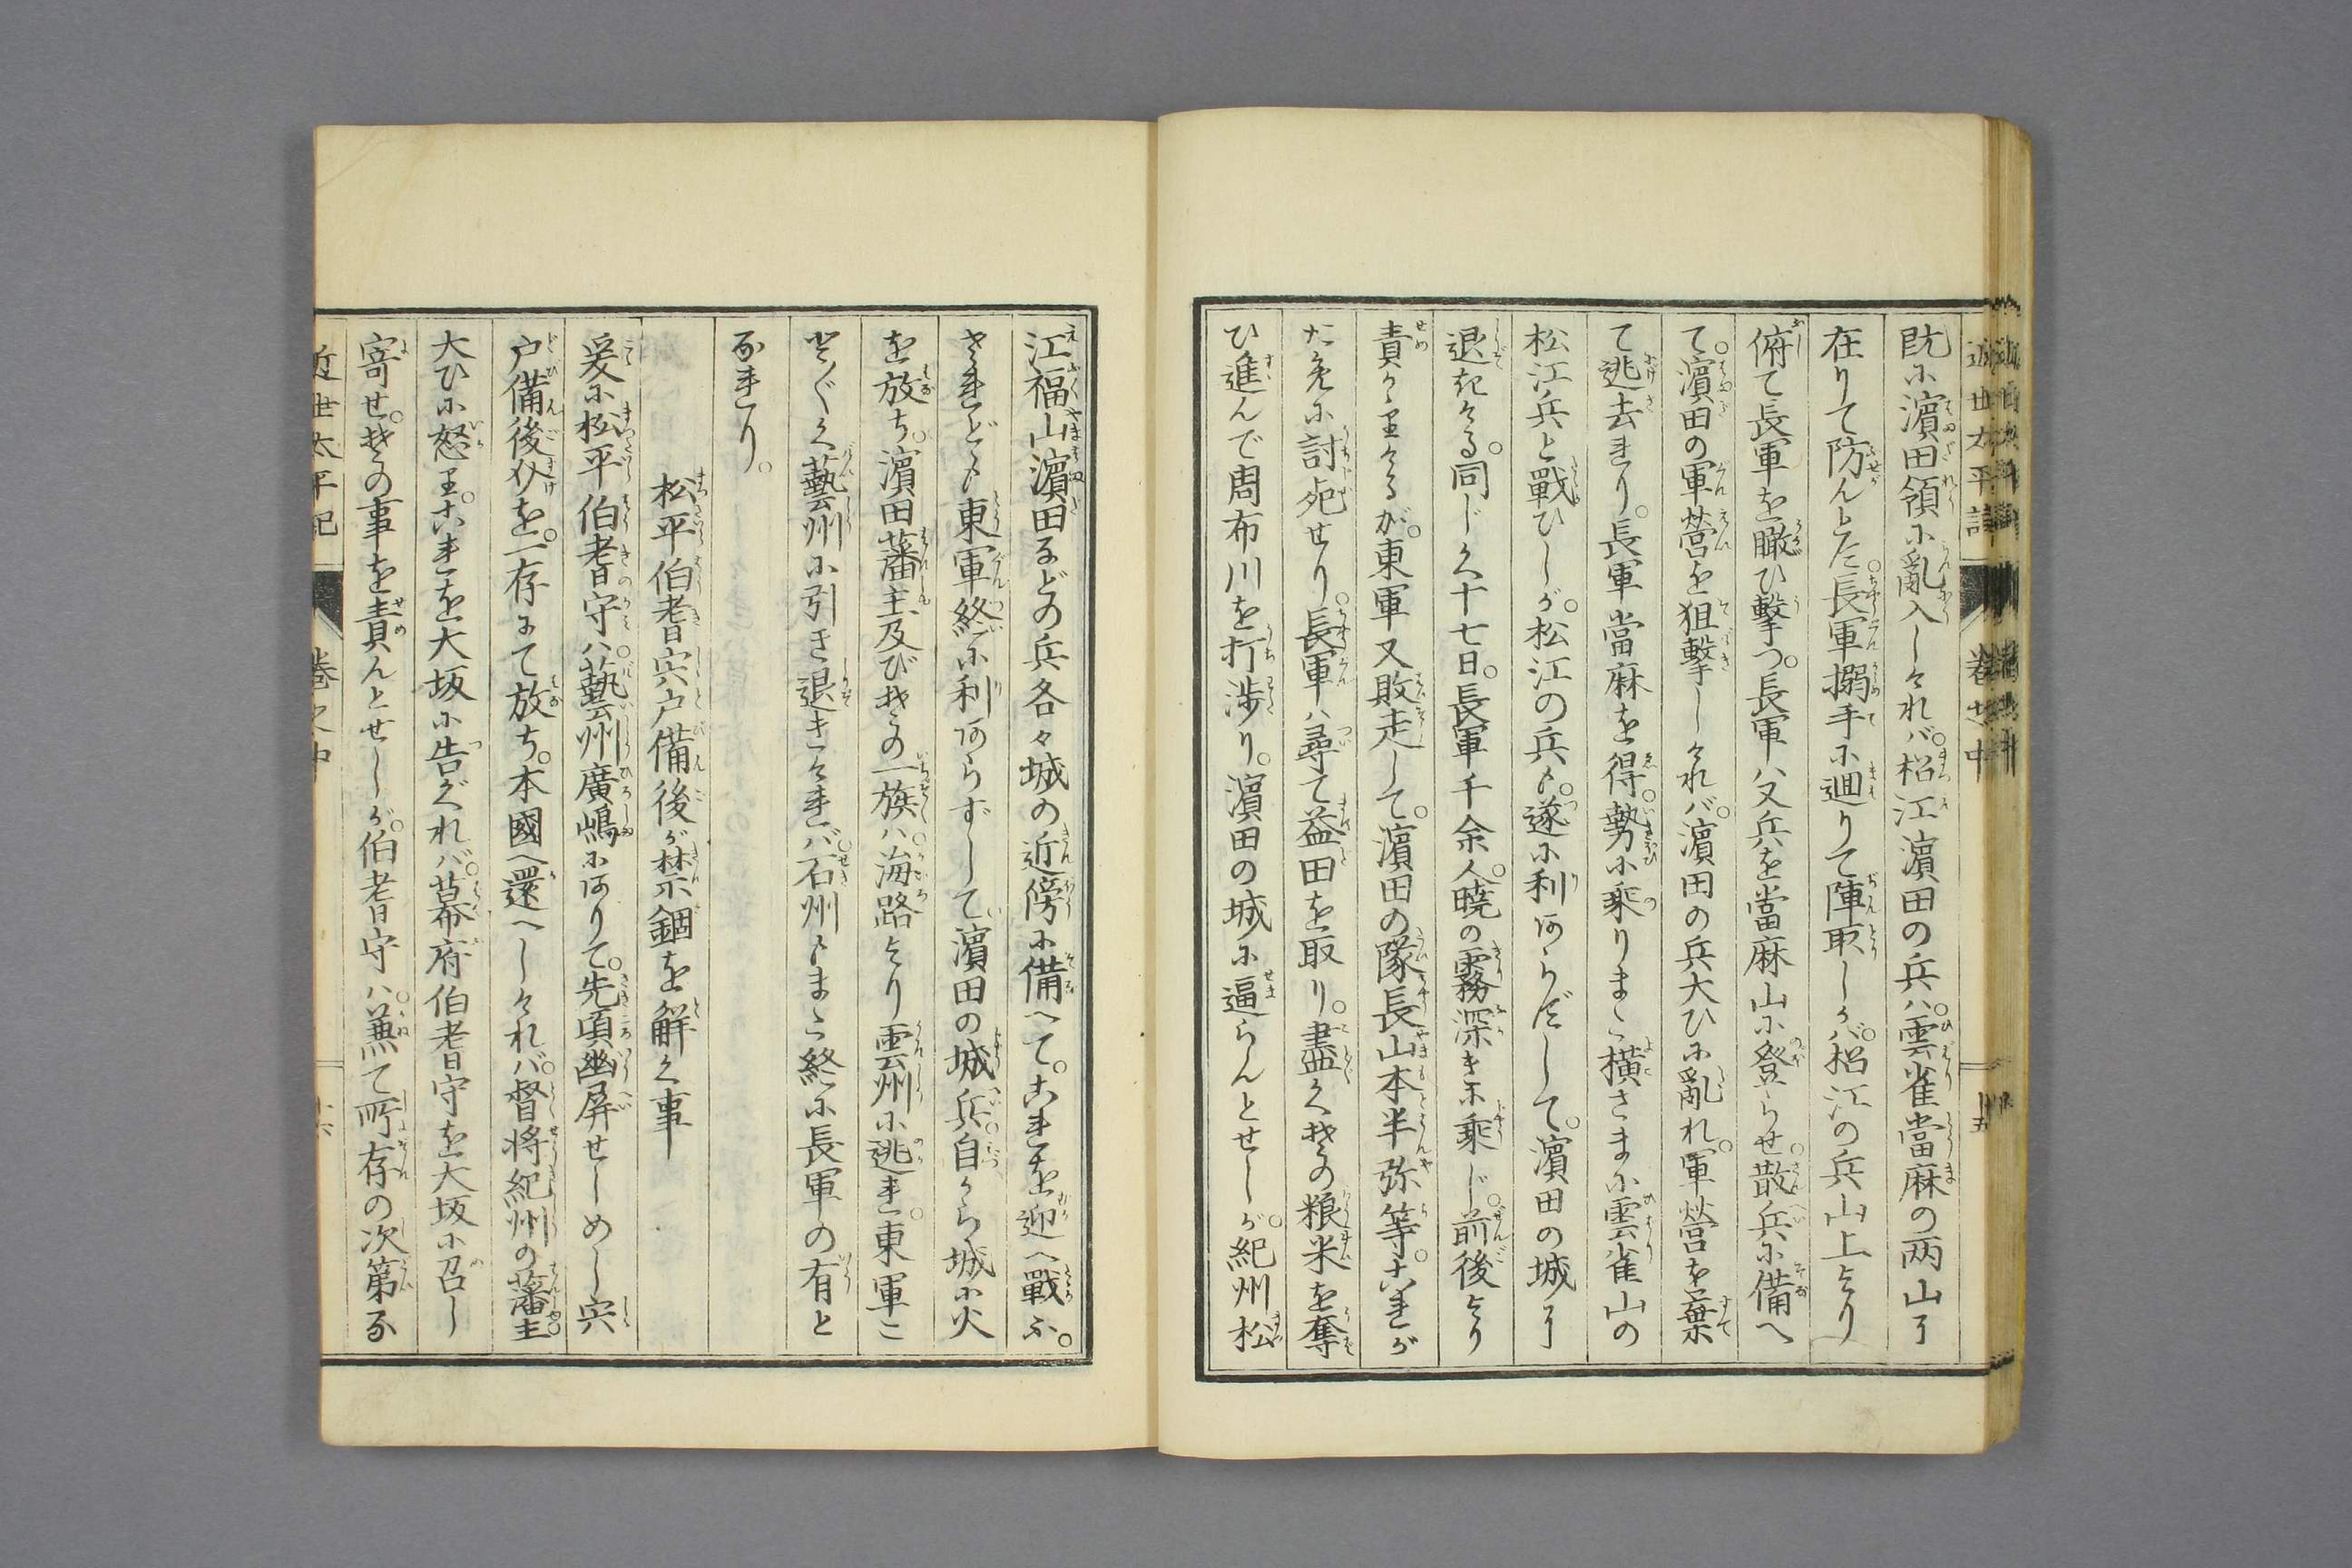 近世太平記 巻之中 十五
既に濱田領に亂入しけれバ。松江濱田の兵ハ。雲雀當麻の両山に
在りて防んとす。長軍搦手に廻りて陣取しかバ。松江の兵山上より
俯て長軍を瞰ひ擊つ。長軍ハ又兵を當麻山に登らせ。散兵に備へ
て。濱田の軍營を狙擊しけれバ。濱田の兵大ひに亂れ。軍營を棄
て逃去れり。長軍當麻を得。勢に乘りまた横さまに雲雀山の
松江兵と戰ひしが。松江の兵も。遂に利あらずして。濱田の城に
退きける。同じく十七日。長軍千余人。暁の霧深きに乘じ。前後より
責かゝりけるが。東軍又敗走して。濱田の隊長山本半弥等。これが
ために討死せり。長軍ハ尋て益田を取り。盡くその粮米を奪
ひ進んで周布川を打渉り。濱田の城に逼らんとせしが。紀州松
江福山濱田などの兵各々城の近傍に備へて。これを迎へ戰ふ。
されども東軍終に利あらずして濱田の城兵。自から城に火
を放ち。濱田藩主及びその一族ハ。海路より雲州に逃れ。東軍こ
とごとく藝州に引き退きけれバ。石州もまた終に長軍の有と
なれり。
松平伯耆宍戸備後が禁錮を解く事
爰に松平伯耆守ハ。藝州廣嶋にありて。先頃幽屏せしめし宍
戸備後介を。一存にて放ち。本國へ還へしけれバ。督将紀州の藩主。
大ひに怒り。これを大坂に告ぐれバ。幕府伯耆守を大坂に召し
寄せ。その事を責んとせしが。伯耆守ハ。兼て所存の次第な
近世太平記 巻之中 十六